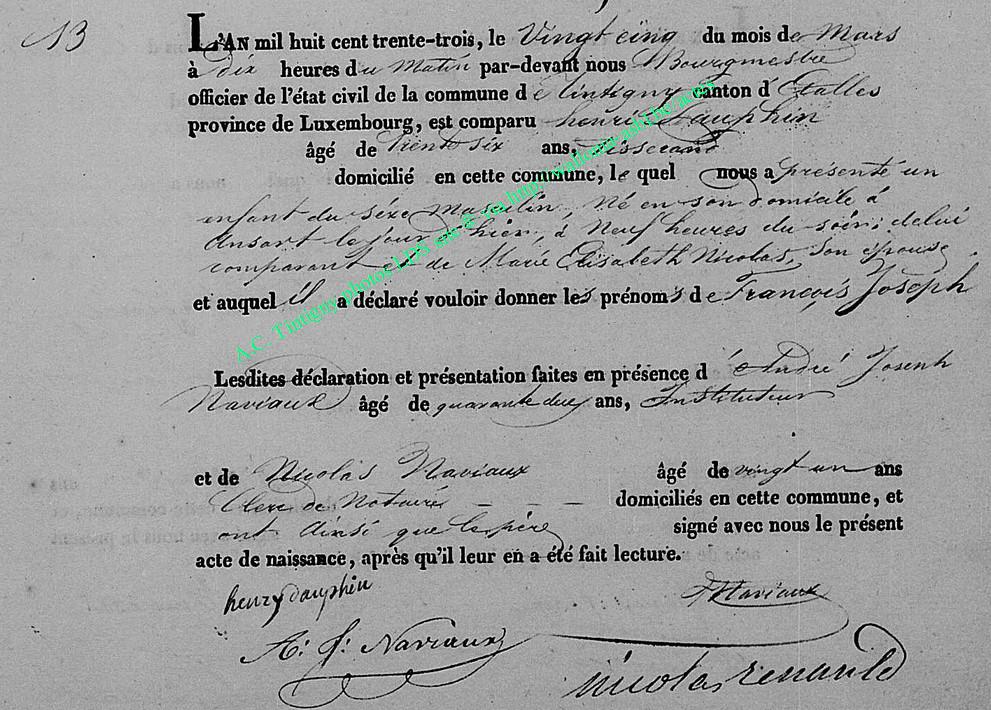 13
L'AN mil huit cent trente-trois, le Vingt cinq du mois de Mars
à dix heures du Matin par-devant nous Bourgmestre
officier de l'état civil de la commune de tintigny canton d'Etalles
province de Luxembourg, est comparu henri Dauphin
âgé de trente six ans, tisserand
domicilié en cette commune, le quel nous a présenté un
enfant du séxe Masculin, Né en son domicile à
ansart le jour d'hier, à Neuf heures du soir, delui
comparant et de Marie Elisabeth Nicolas, son épouse
et auquel il a déclaré vouloir donner les prénoms de François Joseph
Lesdites déclaration et présentation faites en présence d'André Joseph
Naviaux âgé de quarante deux ans, Instituteur
et de Nicolas Naviaux âgé de vingt un ans
Clerc de Notaire - - - domiciliés en cette commune, et
ont ainsi que le père signé avec nous le présent
acte de naissance, après qu'il leur en a été fait lecture.
henry dauphin Naviaux
A: J: Naviaux
nicolas renauld
A.C. Tintigny photos LDS